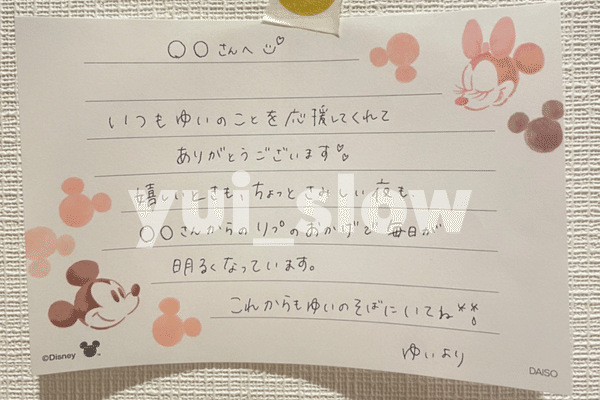 ○○さんへ
いつもゆいのことを応援してくれて
ありがとうございます
嬉しいときも、ちょっとさみしい夜も、
yui_slow
○○さんからのリプのおかげで毎日が
明るくなっています。
これからもゆいのそばにいてね
ゆいより
©Disney
DAISO